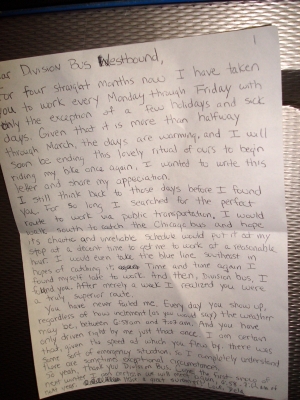 1
ear Division Bus Westbound,
For four straight months now I have taken
you to work every Monday through Friday with
only the exception of a few holidays and sick
days. Given that it is more than halfway
through March, the days are warming, and I will
soon be ending this lovely ritual of ours to begin
riding my bike once again, I wanted to write this
letter and share my appreciation.
I still think back to those days before I found
you. For so long I searched for the perfect
route to work via public transportation. I would
walk south to catch the Chicago bus and hope
its chaotic and unreliable schedule would put it at my
stop at a decent time to get me to work at a reasonable
hour. I would even take the blue line southeast in
hopes of catching it. Time and time again I
found myself late to work. And then, Division bus, I
found you. After merely a week I realized you were
a truly superior route.
You have never failed me. Every day you show up,
regardless of how inclement (as you would say) the weather
may be, between 6:59am and 7:03am. And you have
only driven right by me just that once. I am certain
that, given the speed at which you flew by, there was
some sort of emergency situation, so I completely understand
there are sometimes exceptional circumstances.
So yeah. Thank you Division Bus
next winter I am certain we will